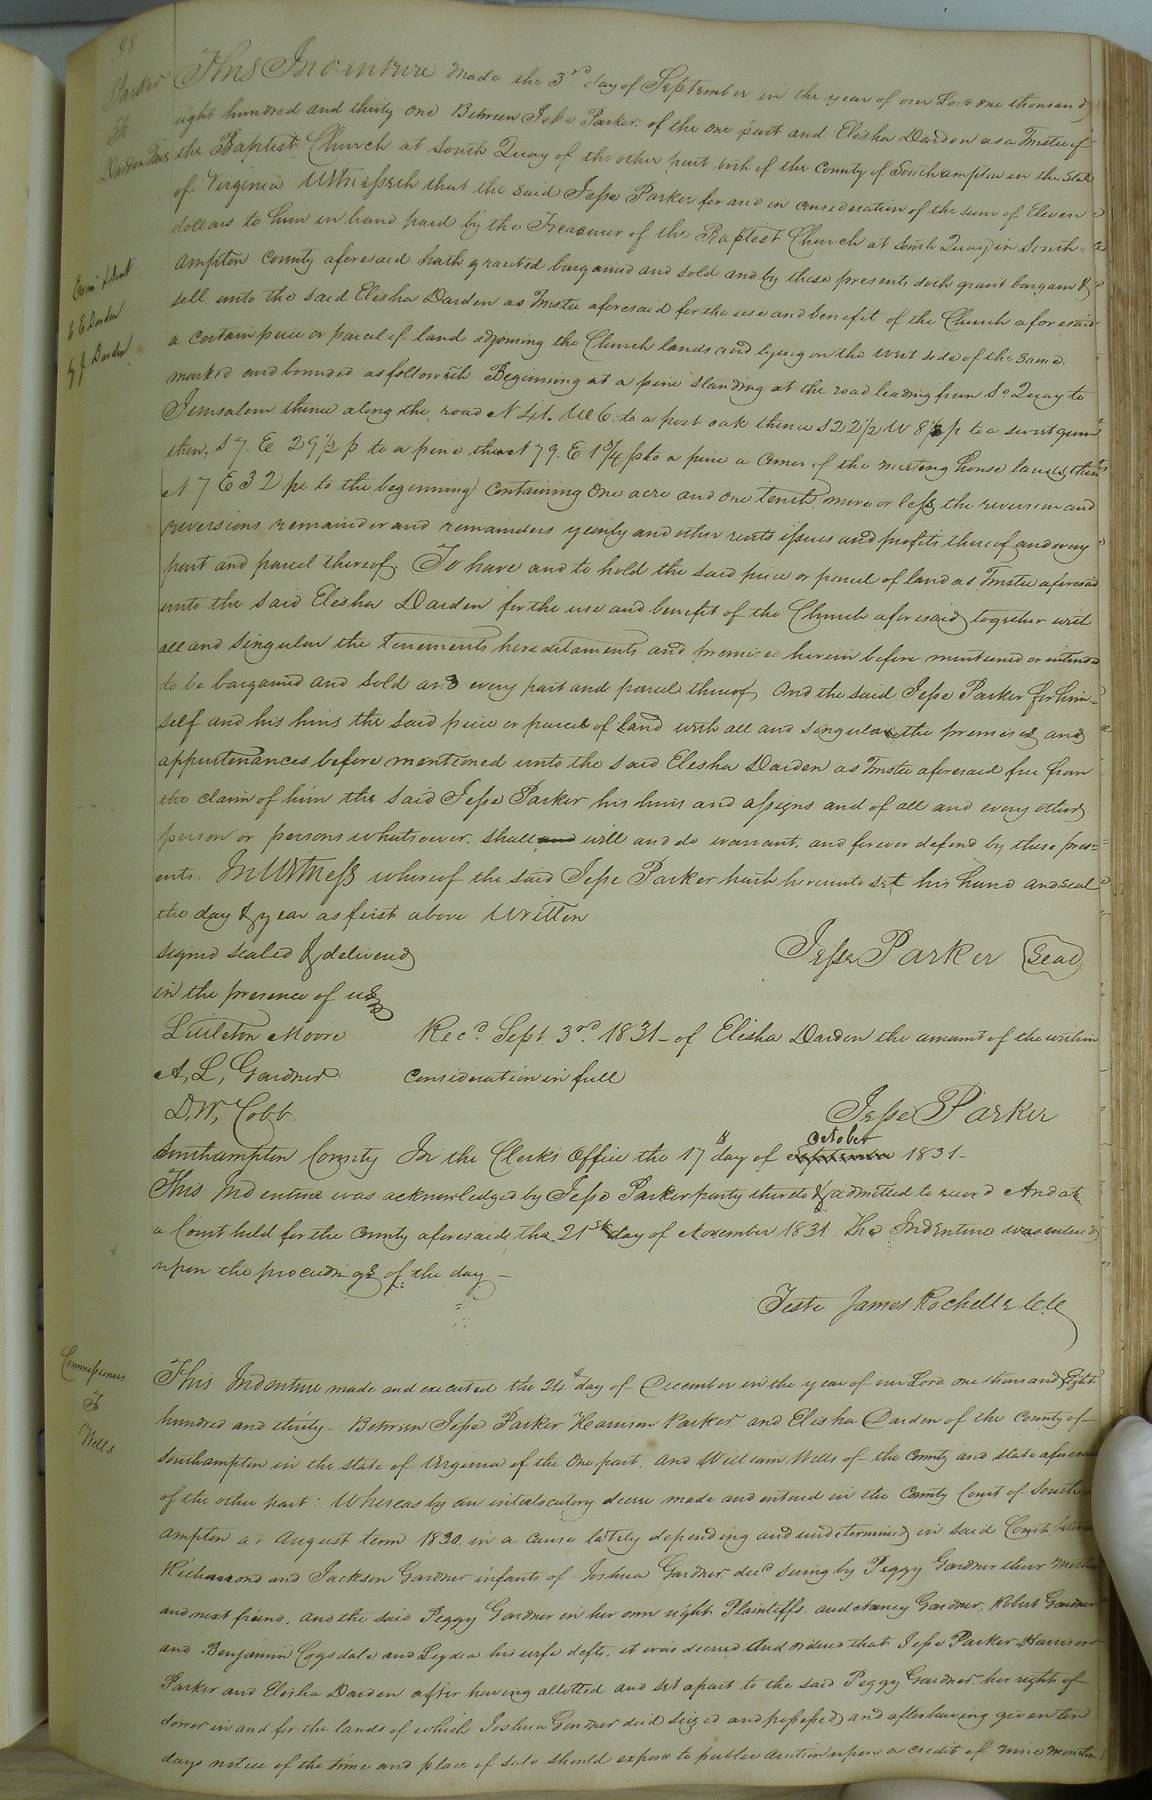 98
Parker
To
Darden Trus
This Indenture made the 3rd day of September in the year of our Lord one thousand
eight hundred and thirty one Between Jesse Parker of the one part and Elesha Darden as a Trustee of
the Baptist Church at South Quay of the other part both of the County of Southampton in the State
of Virginia Witnesseth that the said Jesse Parker for and in consideration of the sum of Eleven
dollars to him in hand paid by the Treasurer of the Baptest Church at South Quay in South=
ampton County aforesaid hath granted bargained and sold and by these presents doth grant bargain &
sell unto the said Elesha Darden as Trustee aforesaid for the use and benefit of the Church aforesaid
a certain piece or parcel of land adjoining the Church lands and lying on the west side of the same
marked and bounded as followeth Beginning at a pine standing at the road leading from So Quay to
Jerusalem thence along the road N 41. W 6. to a post oak thence S 22 1/2 W 8 1/2 p to a sweet gum
then, S 7. E 29 1/2 p to a pine then N 79. E 10 1/4 p to a pine a corner of the meeting house lands then
N 7 E 32 po to the beginning containing One acre and one tenth more or less the reversion and
reversions remainder and remainders yearly and other rents issues and profits thereof and every
part and parcel thereof. To have and to hold the said piece or parcel of land as Trustee aforesaid
unto the said Elesha Darden for the use and benefit of the Church aforesaid together with
all and singular the tenements hereditaments and premises herein before mentioned or intended
to be bargained and sold and every part and parcel thereof And the said Jesse Parker for him=
self and his heirs the said piece or parcel of land with all and singular the premises and
appurtenances before mentioned unto the said Elesha Darden as Trustee aforesaid free from
the claim of him the said Jesse Parker his heirs and assigns and of all and every other
person or persons whatsoever. shall and will and do warrant, and forever defend by these pres=
ents. In Witness whereof the said Jesse Parker hath hereunto set his hand and seal
the day & year as first above Written
signed sealed & delivered
Jesse Parker Seal
in the presence of us
Littleton Moore
Recd. Sept. 3rd. 1831 - of Elisha Darden the amount of the within
A, L, Gardner
consideration in full
D. W, Cobb
Jesse Parker
Southampton County In the Clerks Office the 17th day of September October 1831-
This Indenture was acknowledged by Jesse Parker party thereto & admitted to record And at
a Court held for the County aforesaid the 21st day of November 1831 The Indenture was entered
upon the proceedings of the day -
Teste James Rochelle C.C.
Commissioners
To
Wells
This Indenture made and executed the 24th day of December in the year of our Lord one thousand Eight
hundred and thirty - Between Jesse Parker Harrison Parker and Elisha Darden of the County of
Southampton in the state of Virginia of the One part, and William Wells of the County and State aforesaid
of the other part: Whereas by an interlocutory decree made and entered in the County Court of South
ampton at August term 1830. in a cause lately depending and undetermined in said Court between
Richmond and Jackson Gardner infants of Joshua Gardner decd suing by Peggy Gardner their mother
and next friend, and the said Peggy Gardner in her own right Plaintiffs. and Nancy Gardner, Robert Gardner
and Benjamin Cogsdale and Leydia his wife defts. it was decreed And ordered that Jesse Parker Harrison
Parker and Elesha Darden after having allotted and set apart to the said Peggy Gardner her right of
dower in and for the lands of which Joshua Gardner died seized and possessed and after having given ten
days notice of the time and place of sale should expose to public auction upon a credit of nine months